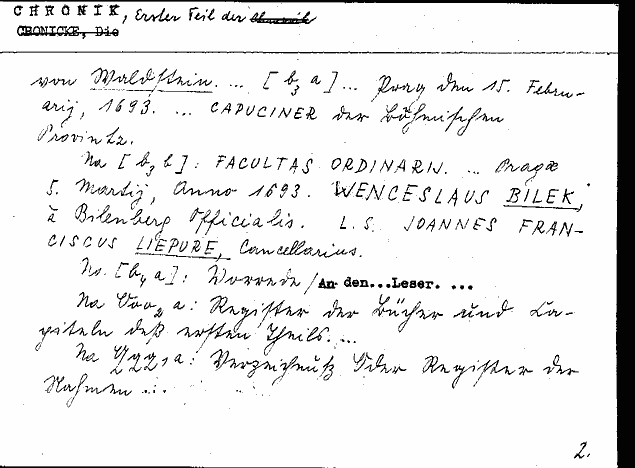 CHRONIK, Erster Teil der Chronik
CRONICKE, Die
von Waldstein. ... [b3 a] ... Prag den 15. Febru-
arij, 1693. ... CAPUCINER der Böhmischen
Provintz.
Na [b3 b]: FACULTAS ORDINARII. ... Pragæ
5. Martij, Anno 1693. WENCESLAUS BILEK,
à Bilenberg Officialis. L.S. JOANNES FRAN-
CISCUS LIEPURE, Cancellarius.
Na [b4 a]: Vorrede / An den...Leser. ...
Na a: Register der Bücher und Ca-
piteln deß ersten Theils. ...
Na a: Verzeichnuß Oder Register der
Nahmen ...
2.